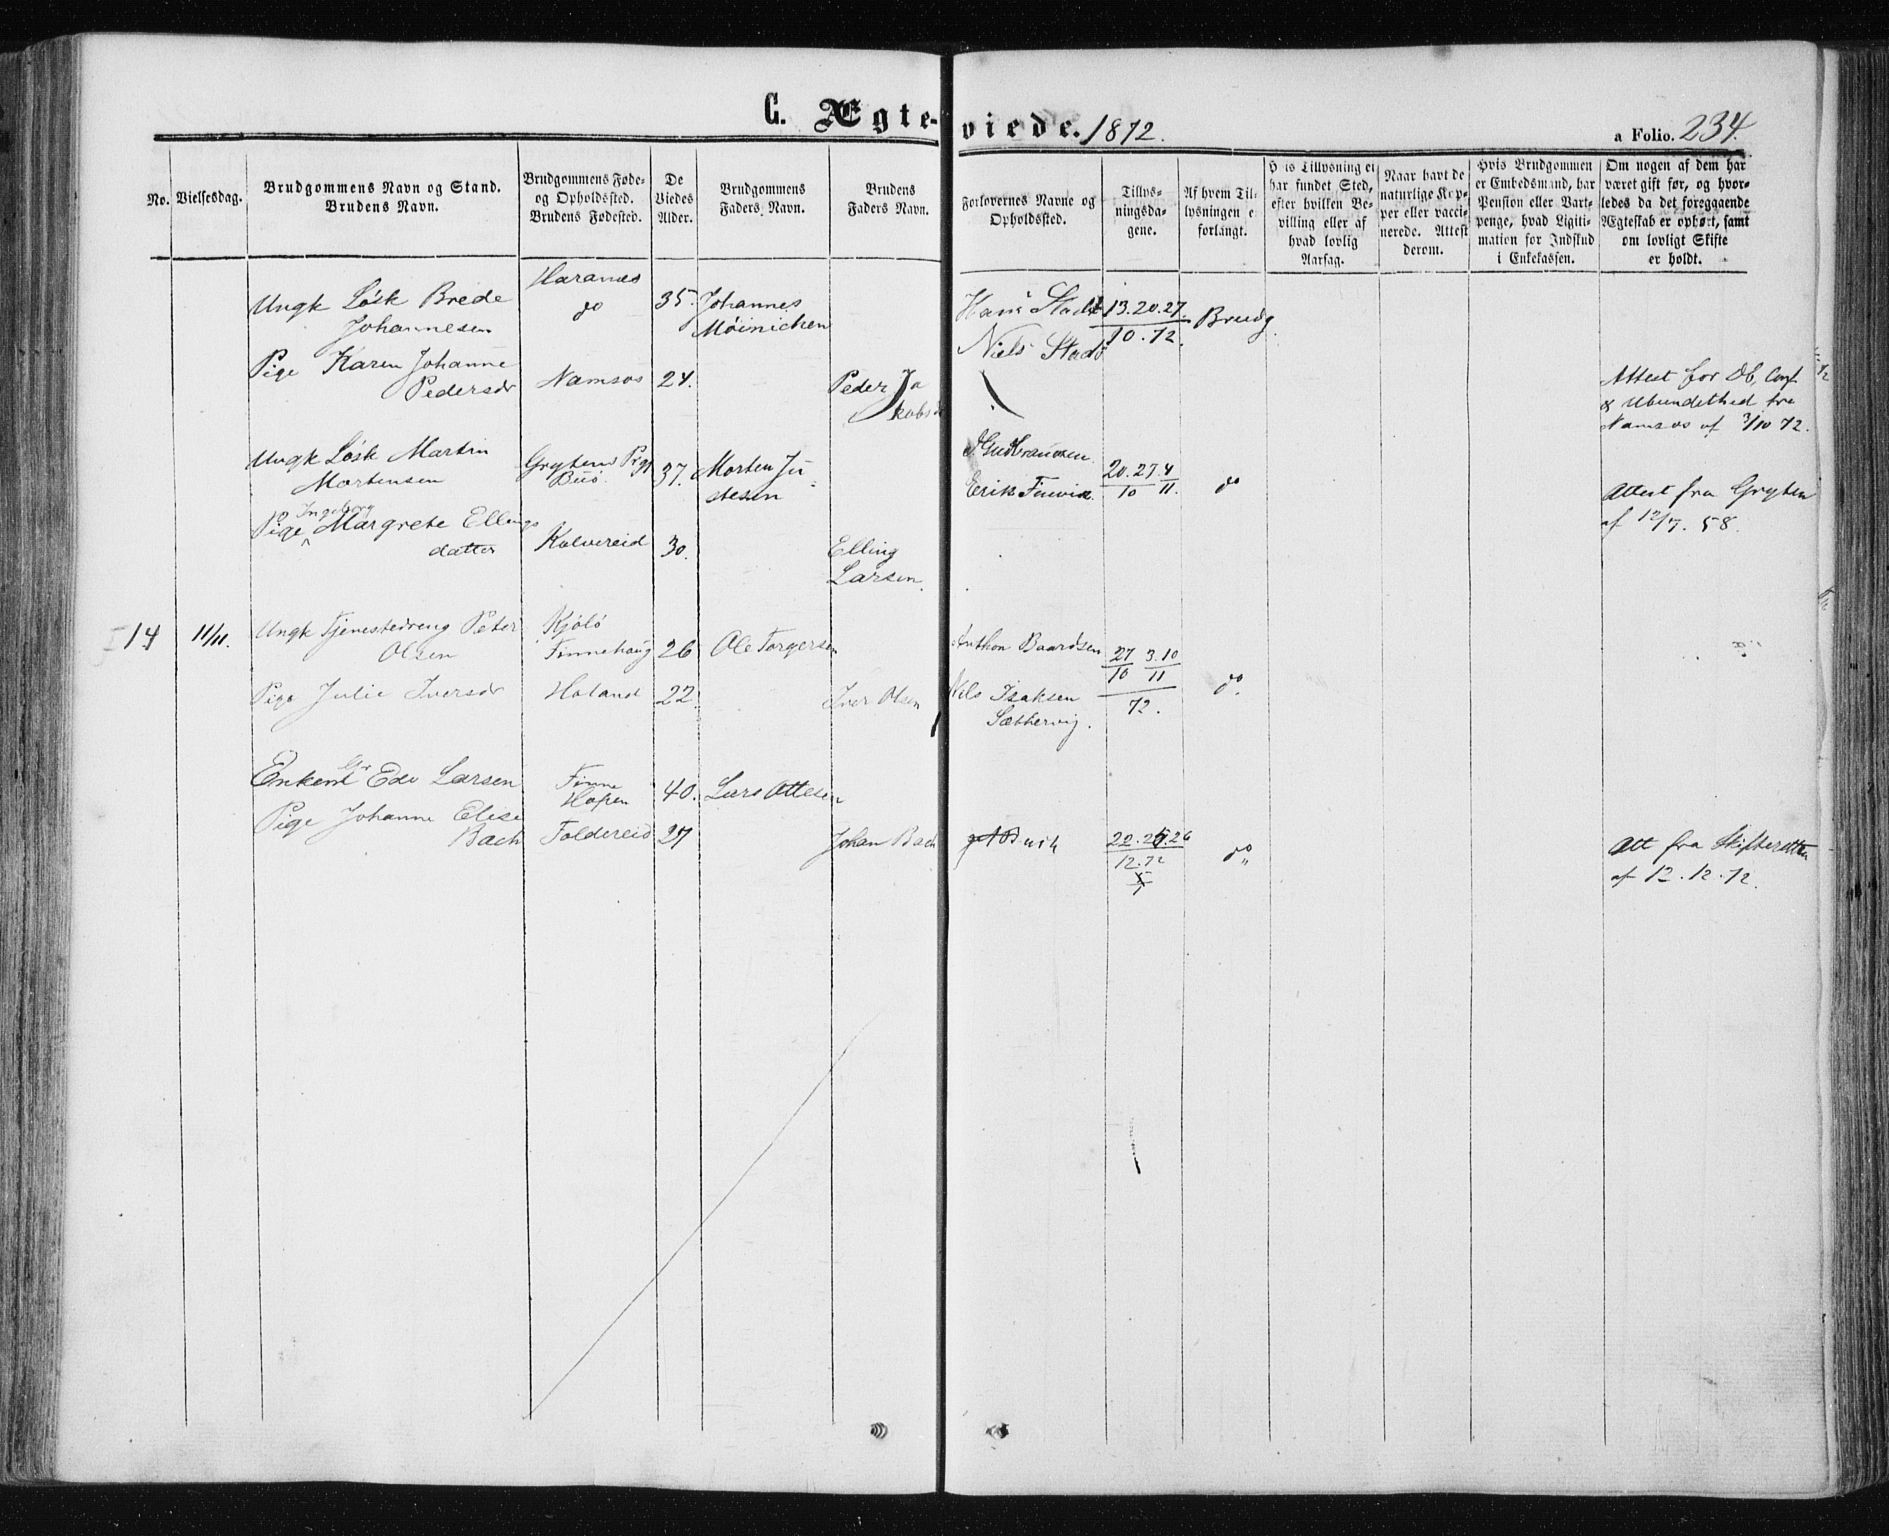 C. Ægte-viede. 1872.
a Folio. 234.
No.
Vielsesdag.
Brudgommens Navn og Stand.
Brudens Navn.
Brudgommens Føde-
og Opholdssted.
Brudens Fødested.
De
Viedes
Alder.
Brudgommens
Faders Navn.
Brudens
Faders Navn.
Forlovernes Navne og
Opholdssted.
Tillys-
ningsda-
gene.
Af hvem Til-
lysningen er
forlangt.
Hvis Tillysning ei
har fundet Sted,
efter hvilken Be-
villing eller af
hvad lovlig
Aarsag.
Naar havt de
naturlige Kop-
per eller vacci-
nerede. Attest
derom.
Hvis Brudgommen
er Embedsmand, har
Pension eller Vart-
penge, hvad Ligiti-
mation for Indskud
i Enkekassen.
Om nogen af dem har
været gift før, og hvor-
ledes da det foregaaende
Ægteskab er ophørt, samt
om lovligt Skifte
er holdt.
Ungk Løsk Brede
Johannesen
Haranæs
do
35.
Johannes
Møinichen
Hans Stadø
Niels Stadø
13.20.27.
10.72.
Brudg
Pige Karen Johanne
Pedersdr
Namsos
24.
Peder Ja
kobs
Attest for Db, Conf
& Ubundethed fra
Namsos af 3/10 72.
Ungk Løsk Martin
Mortensen
Grytem
Buø
37.
Morten Ju
stesen
Gudbrandsen
Erik Finvik
20.27. 4
10 11.
do
Attest fra Gryten
af 12/7. 58.
Pige Ingeborg Margrete Ellings
datter
Kolvereid
30.
Elling
Larsen
14
11/11.
Ungk Tjenestedreng Peter
Olsen
Kjølø
Finnehaug
26
Ole Torgersen
Anthon Baardsen
27 3.10
10 11
72.
do
Pige Julie Iversdr
Høland
22
Iver Olsen
Nils Isaksen
Sæthervig.
Enkem Gr Edv Larsen
Finne
Hopen
40.
Lars Ottesen
Pige Johanne Elise
Bach
Foldereid
27
Johan Bach
22.25.26
12.72
do
Att fra Skifteretten
af 12.12.72.